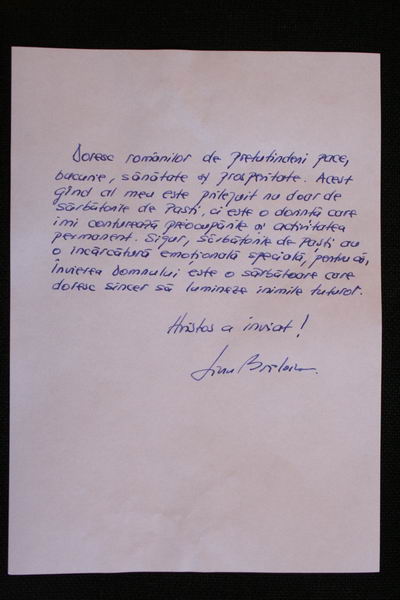 Doresc românilor de pretutindeni pace,
bucurie, sănătate și prosperitate. Acest
gând al meu este prilejuit nu doar de
sărbătorile de Paști, ci este o dorință care
îmi conturează preocupările și activitatea
permanent. Sigur, sărbătorile de Paști au
o încărcătură emoțională specială, pentru că,
Învierea Domnului este o sărbătoare care
doresc sincer să lumineze inimile tuturor.
Hristos a înviat!